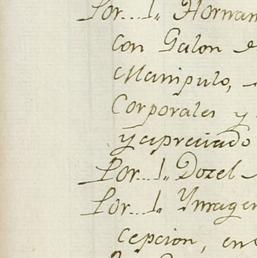 Por... 1,, Hornam
con Galon
Manipulo,
Corporales y
y apreciado
Por... 1,, Dozel
Por... 1,, Ymagen
cepcion, en